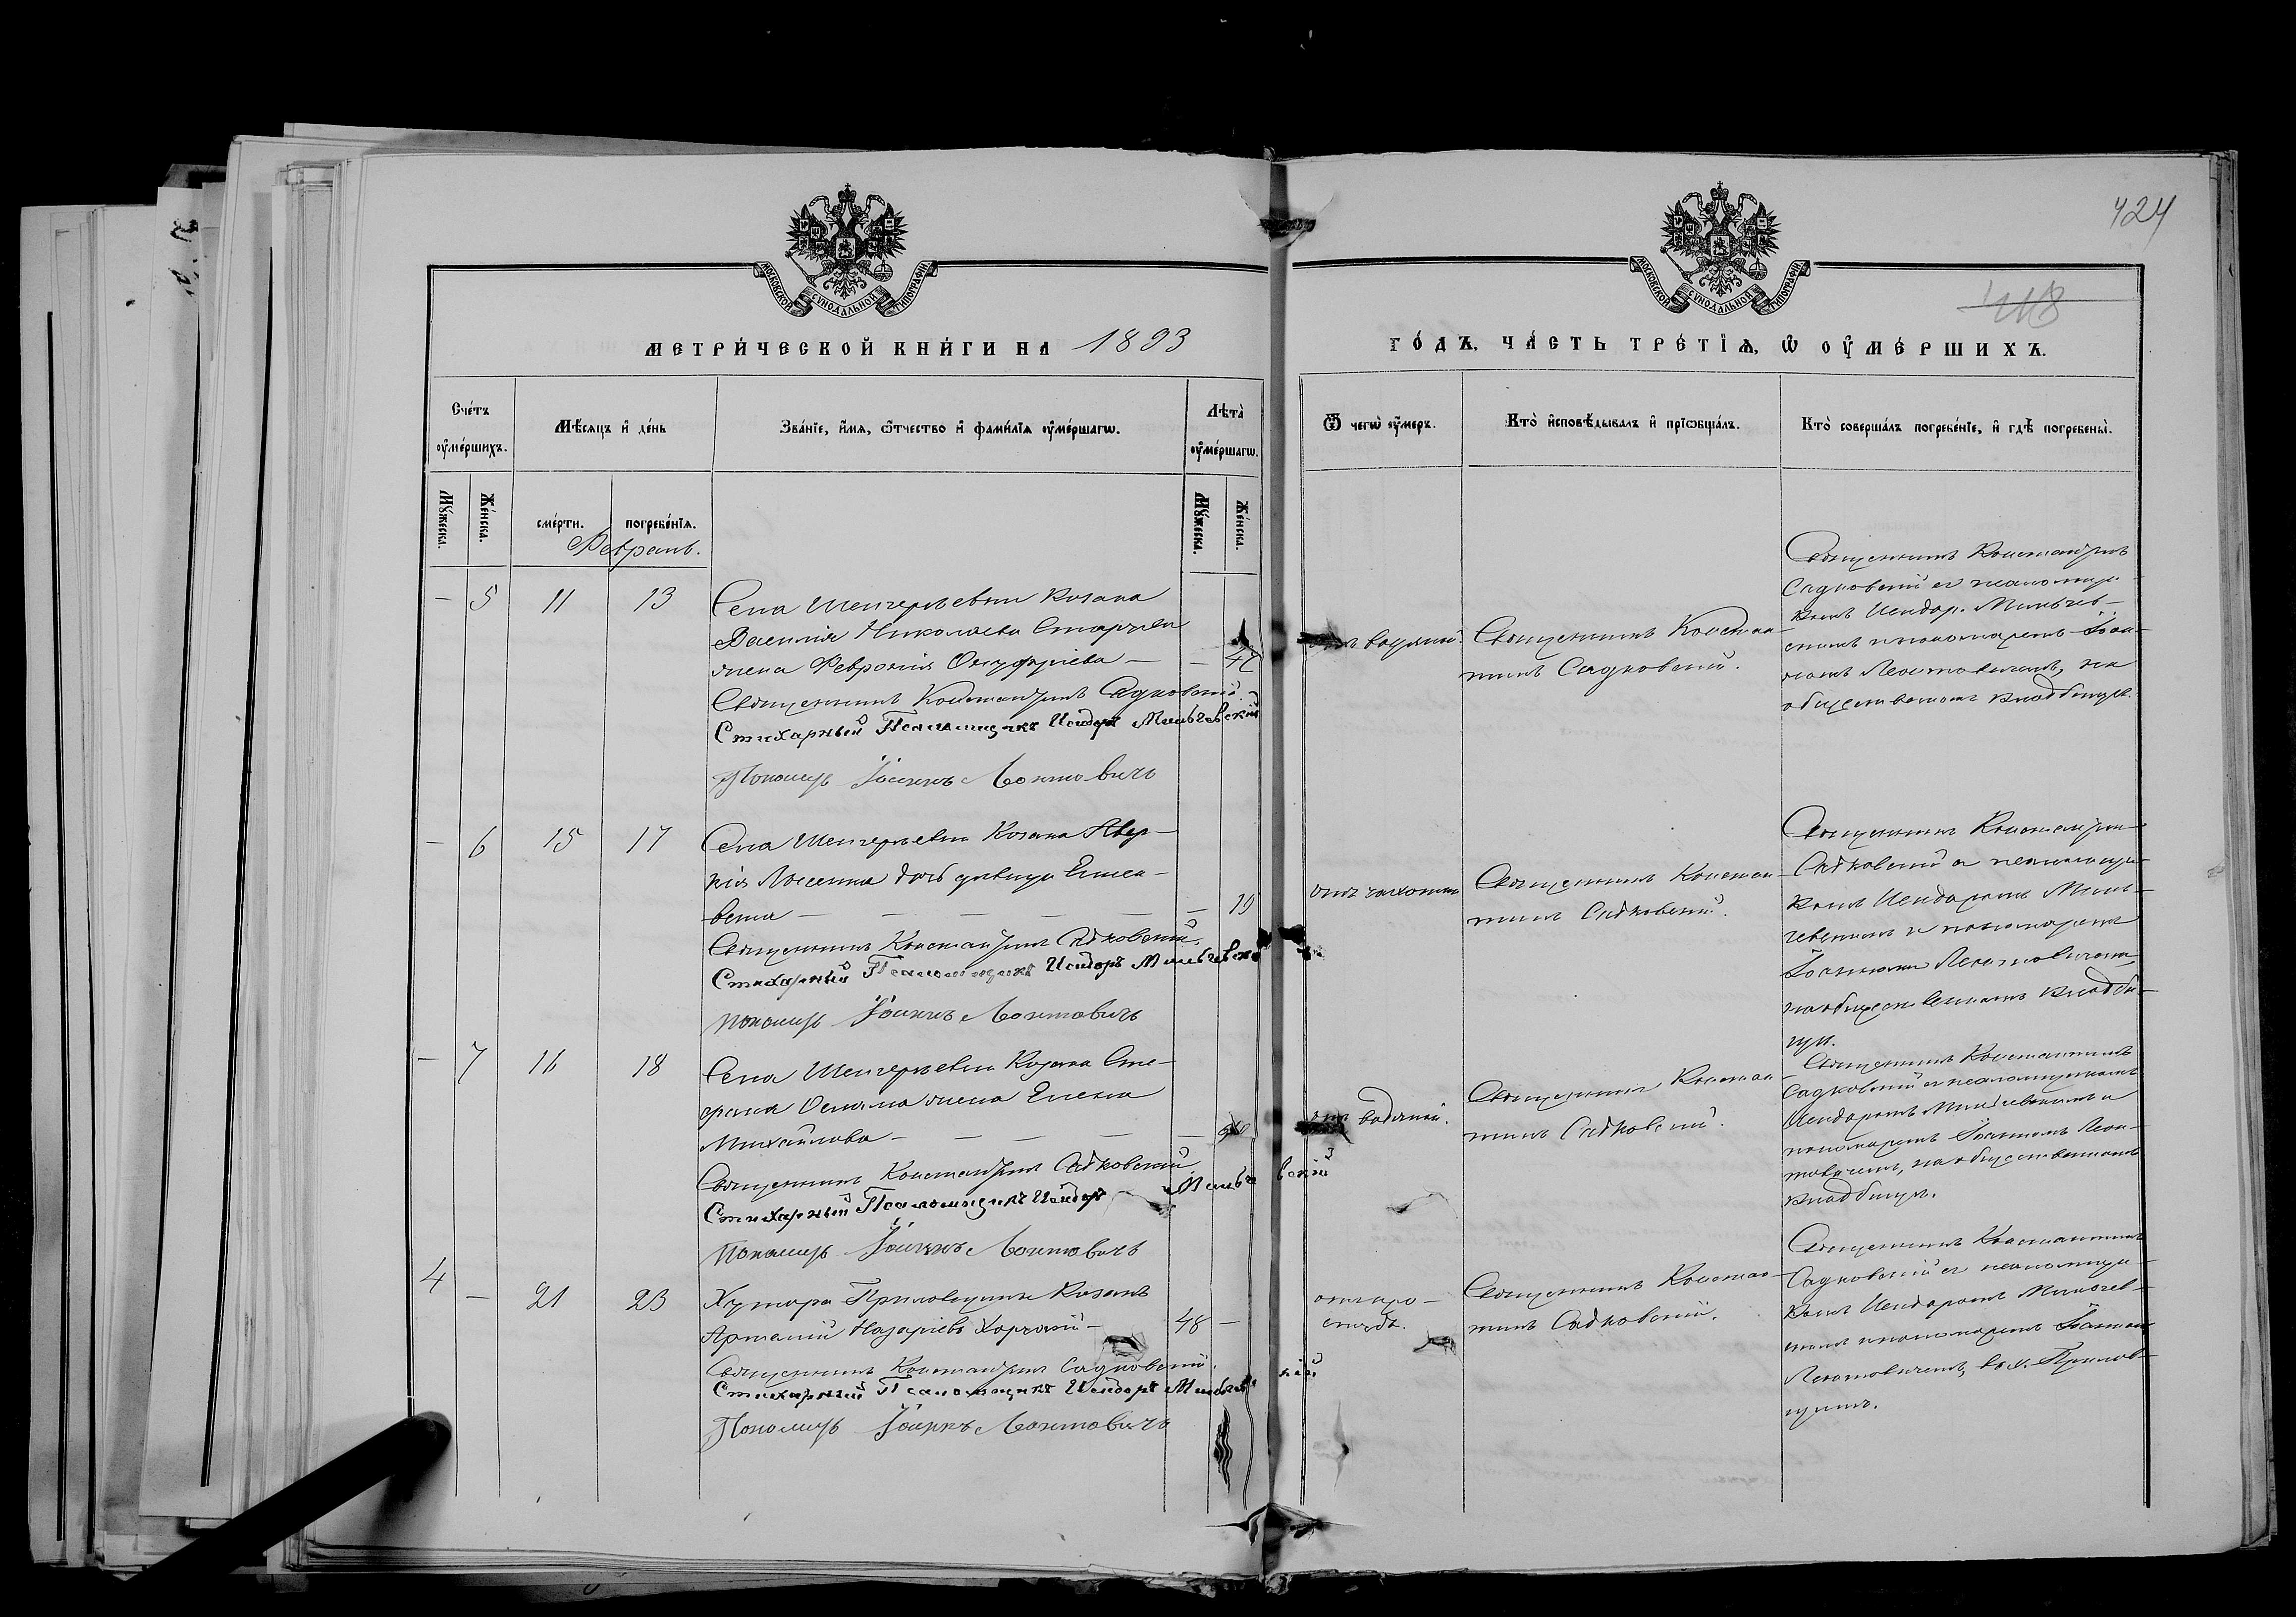 424
418
МОСКОВСКОЙ СѴНОДАЛЬНОЙ ТИПОГРАФІИ
МОСКОВСКОЙ СѴНОДАЛЬНОЙ ТИПОГРАФІИ
МЕТРИ́ЧЕСКОЙ КНИ́ГИ НА 1893
ГО́ДЪ, ЧА́СТЬ ТРЕ́ТІѦ, Ѡ ОУМЕ́РШИХЪ.
Сче́тъ оуме́ршихъ.
Мѣ́сяцъ и де́нь
Зва́нїе, и́мѧ, ѻ҆́тчество и фами́лїѧ оуме́ршагѡ.
Лѣ́та оуме́ршагѡ.
Ѿ чегѡ̀ оу́меръ.
Кто̀ и҆сповѣ́дывалъ и҆ прїѡбща́лъ.
Кто̀ соверша́лъ погребе́нїе, и҆ гдѣ̀ погребены̀.
Мꙋ́жеска.
Же́нска.
сме́рти.
погребе́нїѧ.
Мꙋ́жеска.
Же́нска.
Февраль.
– 5 11 13
Села Козака
Василія Николаева
жена Феврония Онуфріева –
Священникъ Константинъ Садковскій.
Стихарный Псаломщикъ Исидоръ Мильчевскій
Пономарь Іоаннъ Леонтовичъ
Священникъ Констан-
тинъ Садковскій.
Священникъ Константинъ
Садковскій съ псаломщи-
комъ Исидор. Мильчев-
скимъ и пономаремъ Іоан-
номъ Леонтовичемъ, на
общественномъ кладбищѣ.
– 6 15 17
Села Козака Авер-
кія Лысенка дочь дѣвица Елиса-
вета – – – – – – 19
Священникъ Константинъ Садковскій.
Стихарный Псаломщикъ Исидоръ Мильчевскій
Пономарь Іоаннъ Леонтовичъ
отъ чахотки
Священникъ Констан-
тинъ Садковскій.
Священникъ Константинъ
Садковскій съ псаломщи-
комъ Исидоромъ Миль-
чевскимъ и пономаремъ
Іоанномъ Леонтовичемъ,
на общественномъ кладби-
щѣ.
– 7 16 18
Села Козака Сте-
фана жена Елена
Михайлова – – – – –
Священникъ Константинъ Садковскій.
Стихарный Псаломщикъ Исидоръ Мильчевскій
Пономарь Іоаннъ Леонтовичъ
отъ водяной.
Священникъ Констан-
тинъ Садковскій.
Священникъ Константинъ
Садковскій съ псаломщикомъ
Исидоромъ Мильчевскимъ и
пономаремъ Іоанномъ Леон-
товичемъ, на общественномъ
кладбищѣ.
4 – 21 23
Хутора Приловщины Козакъ
Артемій Назаріевъ – 48 –
Священникъ Константинъ Садковскій.
Стихарный Псаломщикъ Исидоръ Мильчевскій
Пономарь Іоаннъ Леонтовичъ
Священникъ Констан-
тинъ Садковскій.
Священникъ Константинъ
Садковскій съ псаломщи-
комъ Исидоромъ Мильчев-
скимъ и пономаремъ Іоанномъ
Леонтовичемъ, въ х. Прилов-
щинѣ.